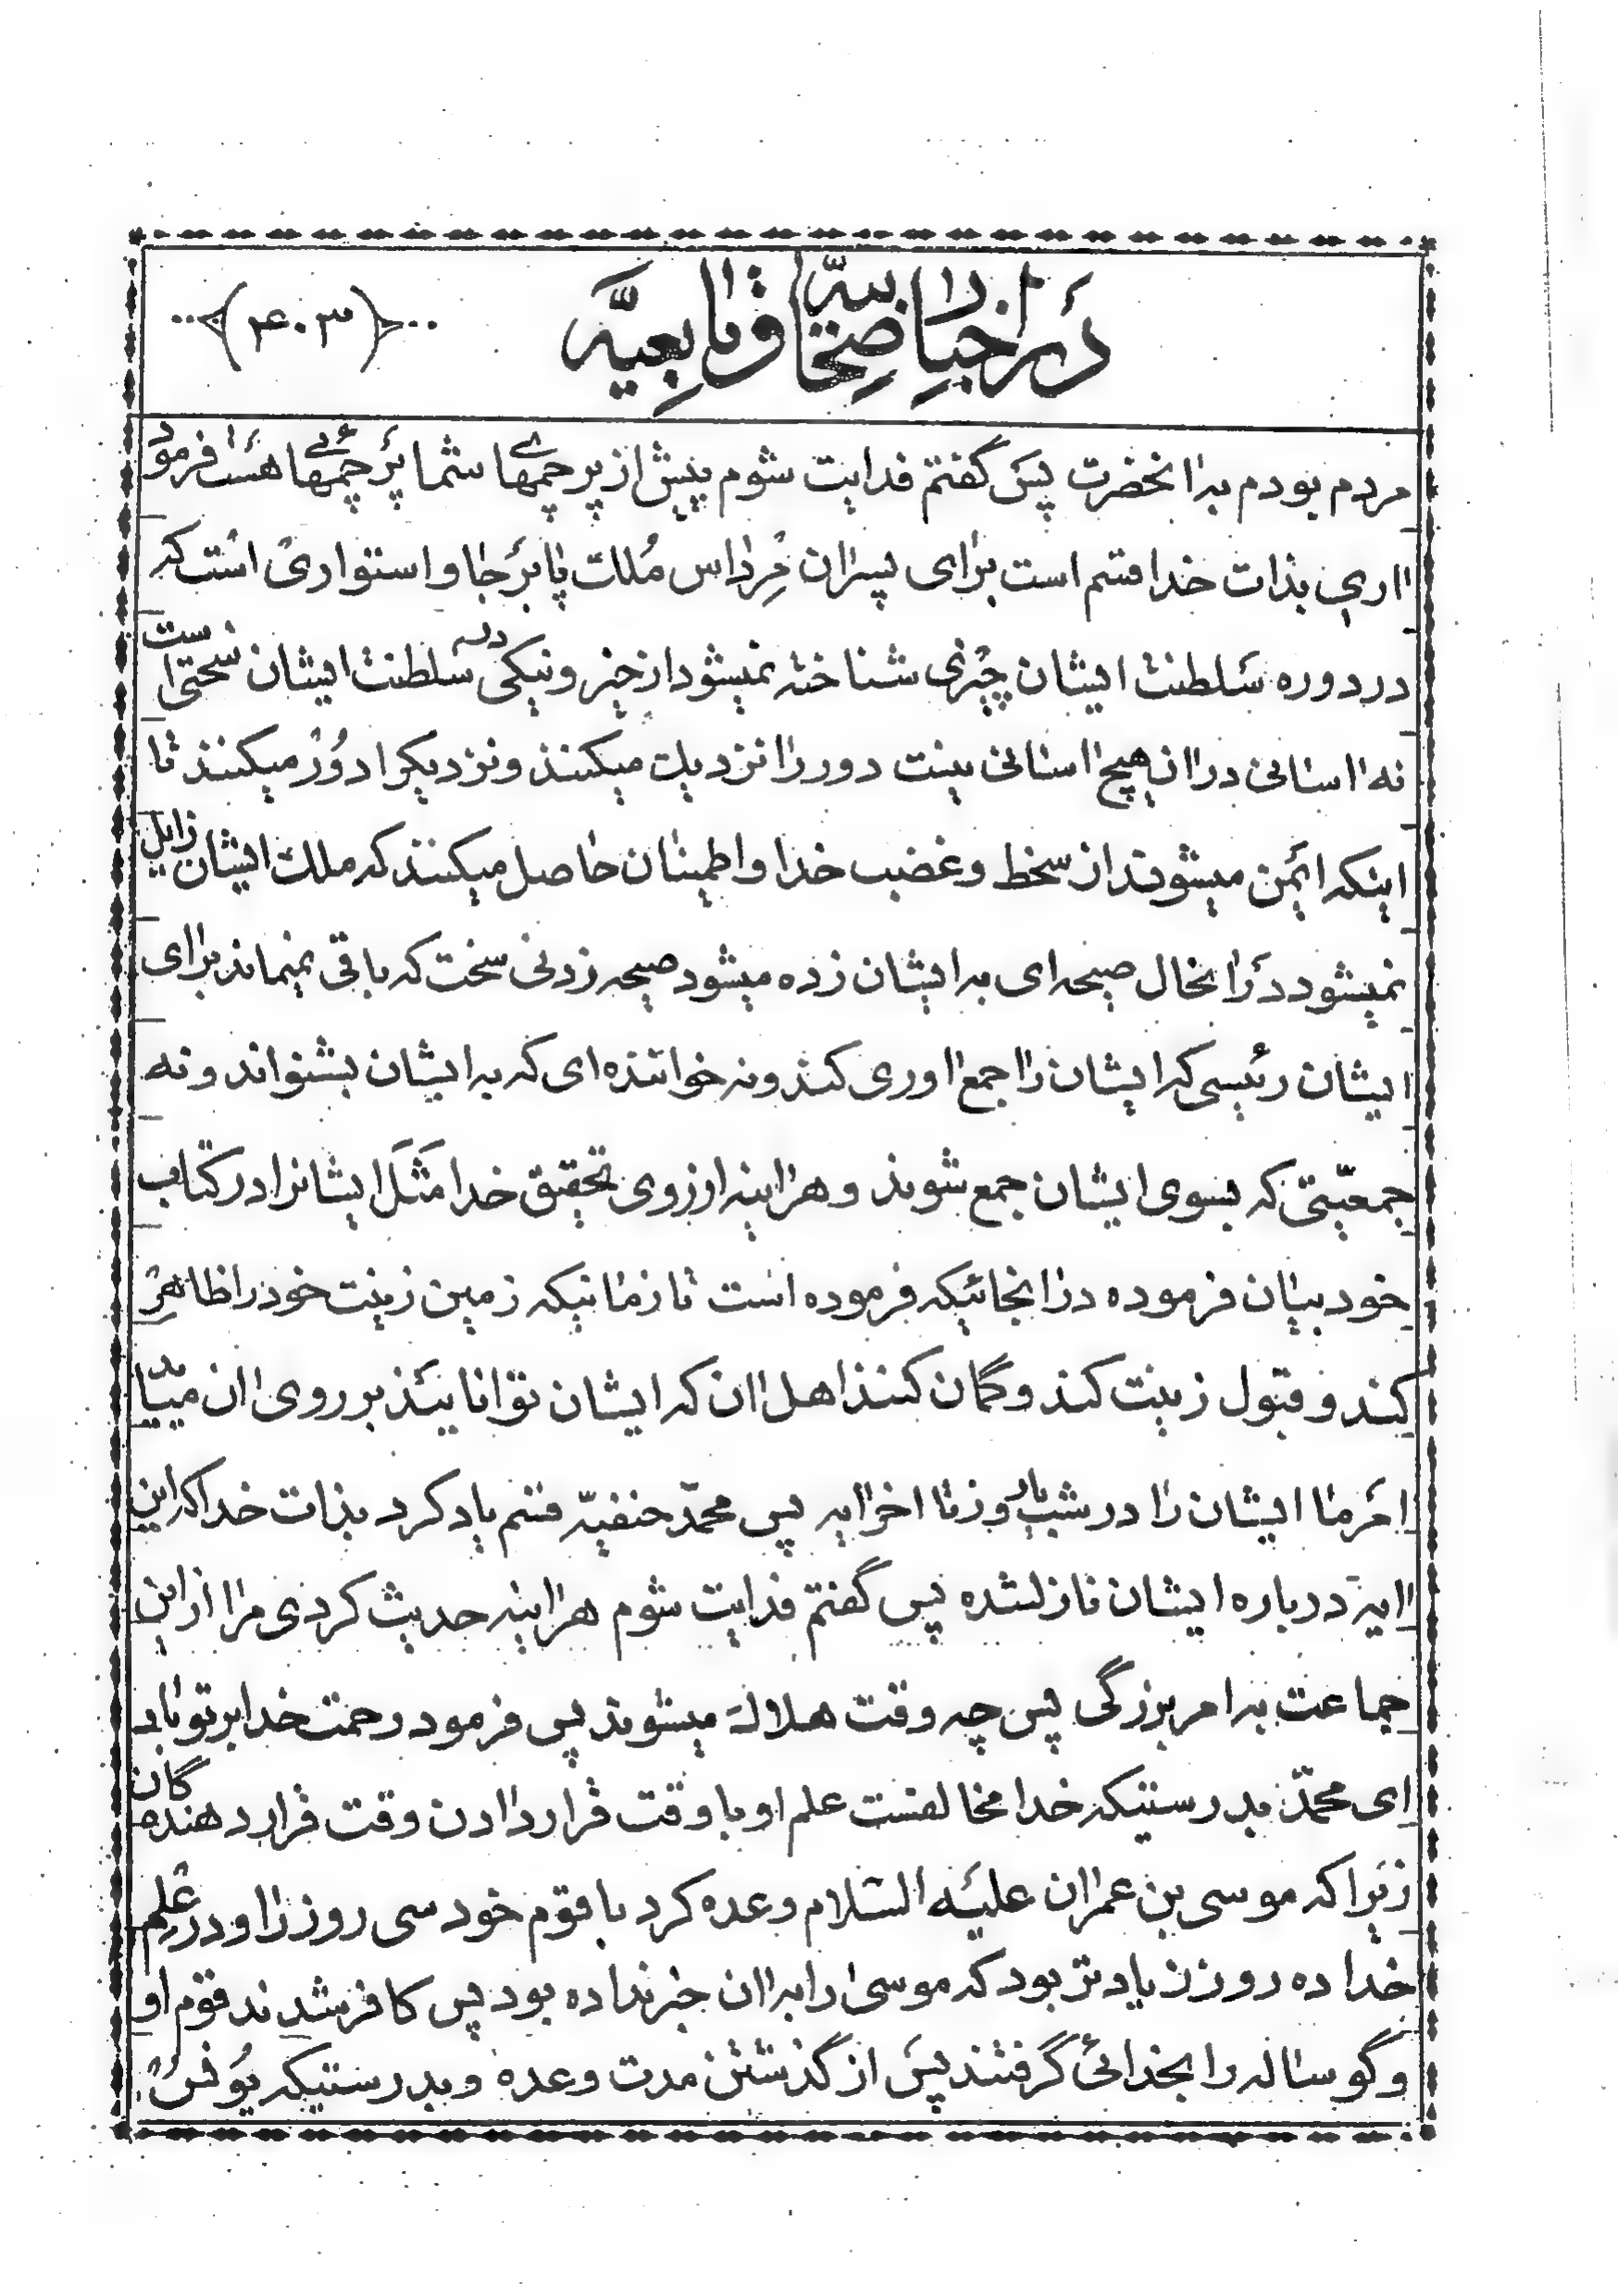 در اخبار صحابه و تابعیه
(۴۰۳)
مردم بودم به انحضرت پس گفتم فدایت شوم پیش از پرچمهای شما پرچمهائی هست فرمود
اری بذات خدا قسم است برای پسران مرداس ملک پابرجا و استواری است که
در دوره سلطنت ایشان چیزی شناخته نمیشود از خیر و نیکی در سلطنت ایشان سختی است
نه اسانی در ان هیچ اسانی نیست دور را نزدیک میکنند و نزدیک را دور میکنند تا
اینکه ایمن میشوند از سخط و غضب خدا و اطمینان حاصل میکنند که ملک ایشان زایل
نمیشود در انحال صیحه ای به ایشان زده میشود صیحه زدنی سخت که باقی نمیماند برای
ایشان رئیسی که ایشان را جمع اوری کند و نه خواننده ای که به ایشان بشنواند و نه
جمعیّتی که بسوی ایشان جمع شوند و هراینه از روی تحقیق خدا مَثَل ایشانرا در کتاب
خود بیان فرموده در انجائیکه فرموده است تا زمانیکه زمین زینت خود را ظاهر
کند و قبول زینت کند و گمان کنند اهل ان که ایشان توانایند بر روی ان میاید
امر ما ایشان را در شب یا روز تا اخر ایه پس محمّد حنفیّه قسم یاد کرد بذات خدا که این
ایه درباره ایشان نازلشده پس گفتم فدایت شوم هراینه حدیث کردی مرا از این
جماعت به امر بزرگی پس چه وقت هلاک میشوند پس فرمود رحمت خدا بر تو باد
ای محمّد بدرستیکه خدا مخالفست علم او با وقت قرار دادن وقت قرار دهنده گان
زیرا که موسی بن عمران علیه السّلام وعده کرد با قوم خود سی روز را و در علم
خدا ده روز زیادتر بود که موسی را به ان خبر نداده بود پس کافر شدند قوم او
و گوساله را بخدائی گرفتند پس از گذشتن مدت وعده و بدرستیکه یونس